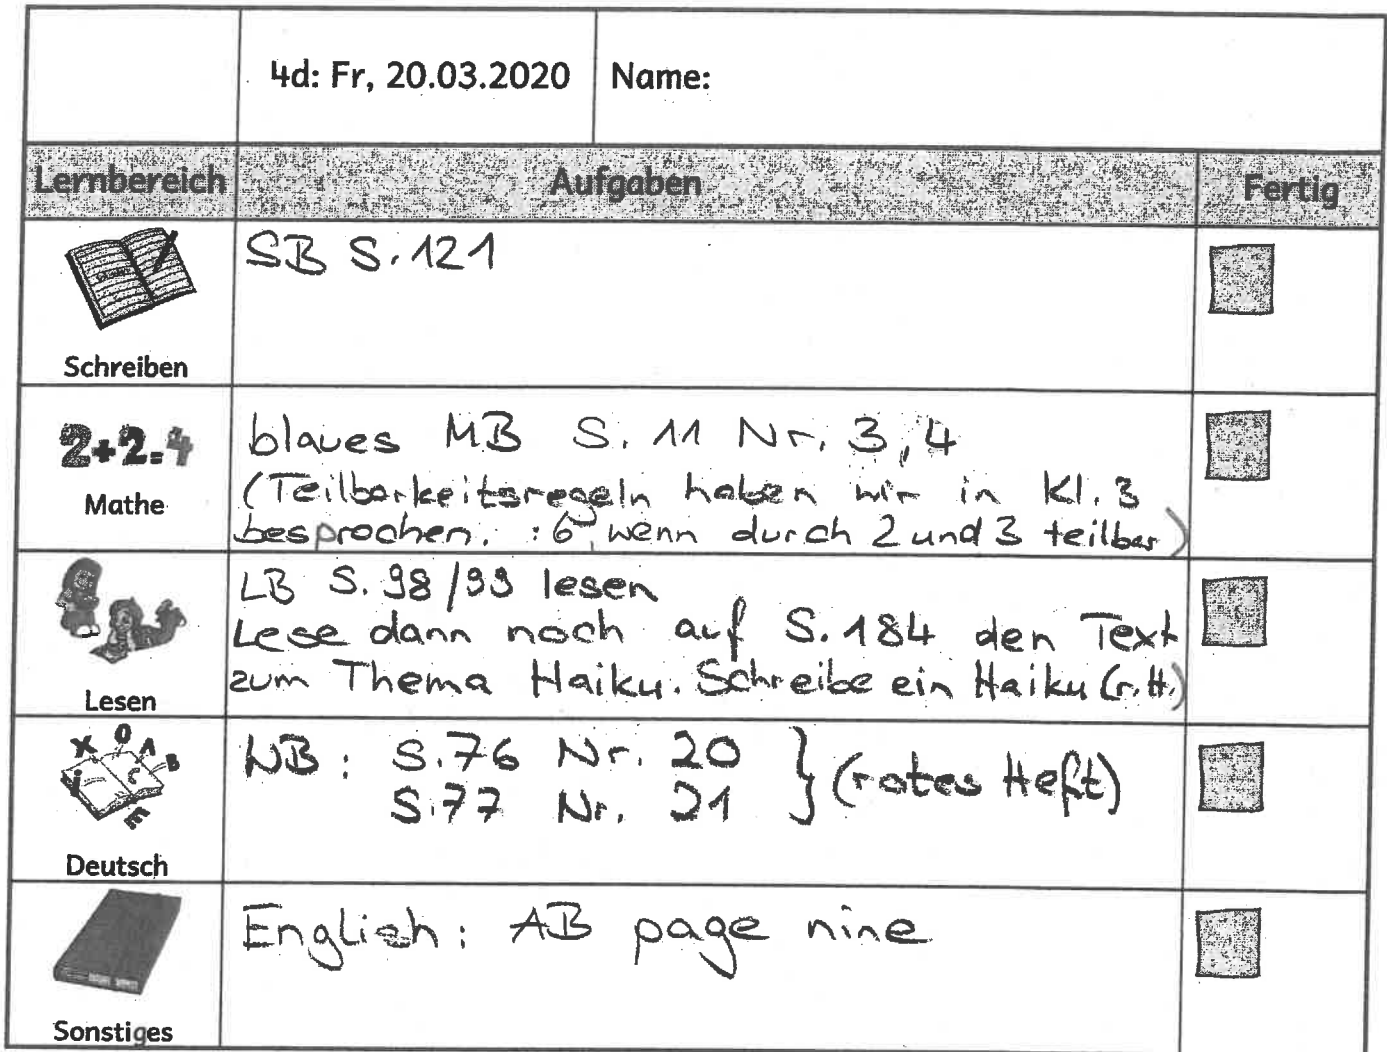 4d: Fr, 20.03.2020 Name:
Lernbereich Aufgaben Fertig
SB S. 121
Schreiben
2+2=4
Mathe
blaues MB S. 11 Nr. 3, 4
(Teilbarkeitsregeln haben wir in Kl. 3
besprochen. :6, wenn durch 2 und 3 teilbar)
Lesen
LB S. 98/99 lesen
Lese dann noch auf S. 184 den Text
zum Thema Haiku. Schreibe ein Haiku (r.H.)
X O A B C i E
Deutsch
NB: S. 76 Nr. 20
S. 77 Nr. 21 } (rotes Heft)
Sonstiges
English: AB page nine